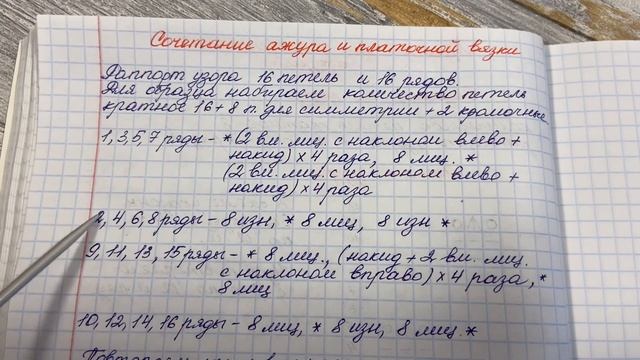 Сочетание ажура и платочной вязки
Раппорт узора 16 петель и 16 рядов.
Для образца набираем количество петель
кратное 16 + 8 п. для симметрии + 2 кромочные
1, 3, 5, 7 ряды - * (2 вм. лиц. с наклоном влево +
накид) × 4 раза, 8 лиц. *
(2 вм. лиц. с наклоном влево +
накид) × 4 раза
2, 4, 6, 8 ряды - 8 изн, * 8 лиц, 8 изн *
9, 11, 13, 15 ряды - * 8 лиц., (накид + 2 вм. лиц.
с наклоном вправо) × 4 раза, *
8 лиц
10, 12, 14, 16 ряды - 8 лиц, * 8 изн, 8 лиц *
Повторяем